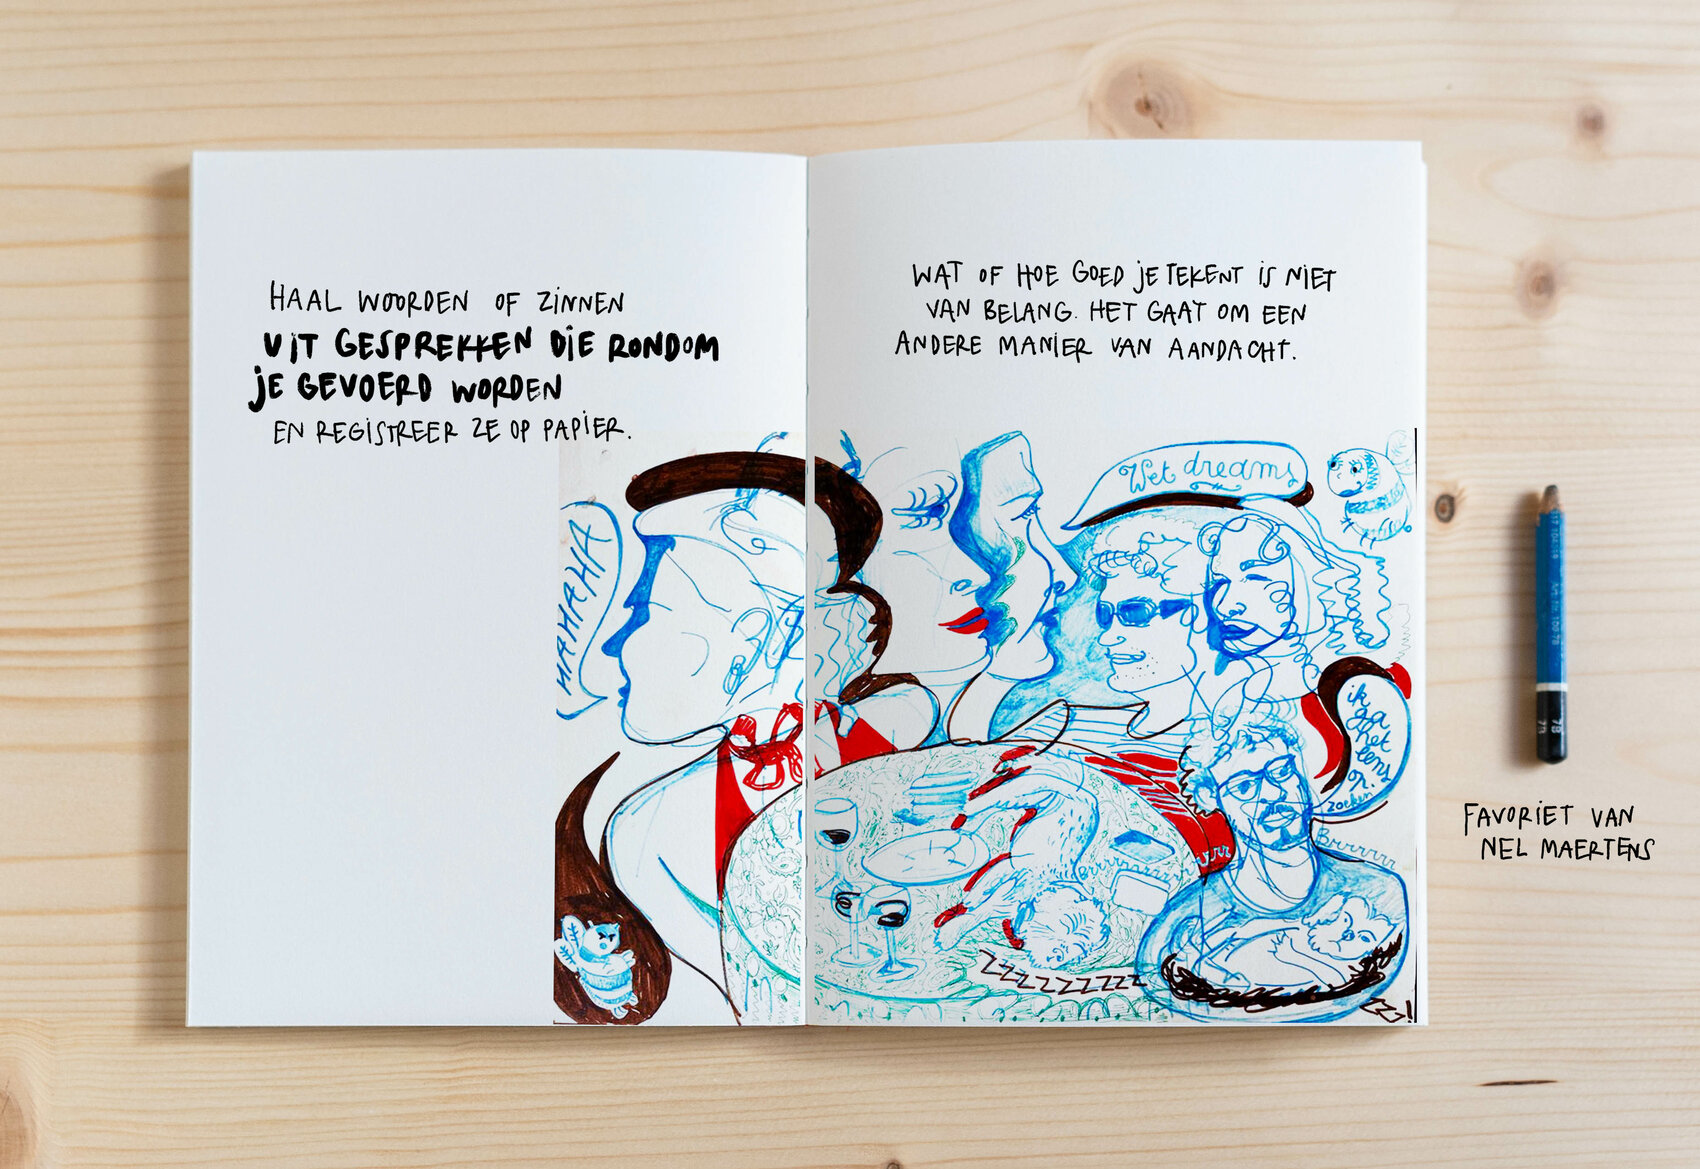 HAAL WOORDEN OF ZINNEN
UIT GESPREKKEN DIE RONDOM
JE GEVOERD WORDEN
EN REGISTREER ZE OP PAPIER.
WAT OF HOE GOED JE TEKENT IS NIET
VAN BELANG. HET GAAT OM EEN
ANDERE MANIER VAN AANDACHT.
HAHAHAHA
Wet dreams
ik
ga
het
eens
op
zoeken.
Brrrrrrr
Brrrrrrrrrr
ZZZZZZZZZZ
ZZZ!
FAVORIET VAN
NEL MAERTENS